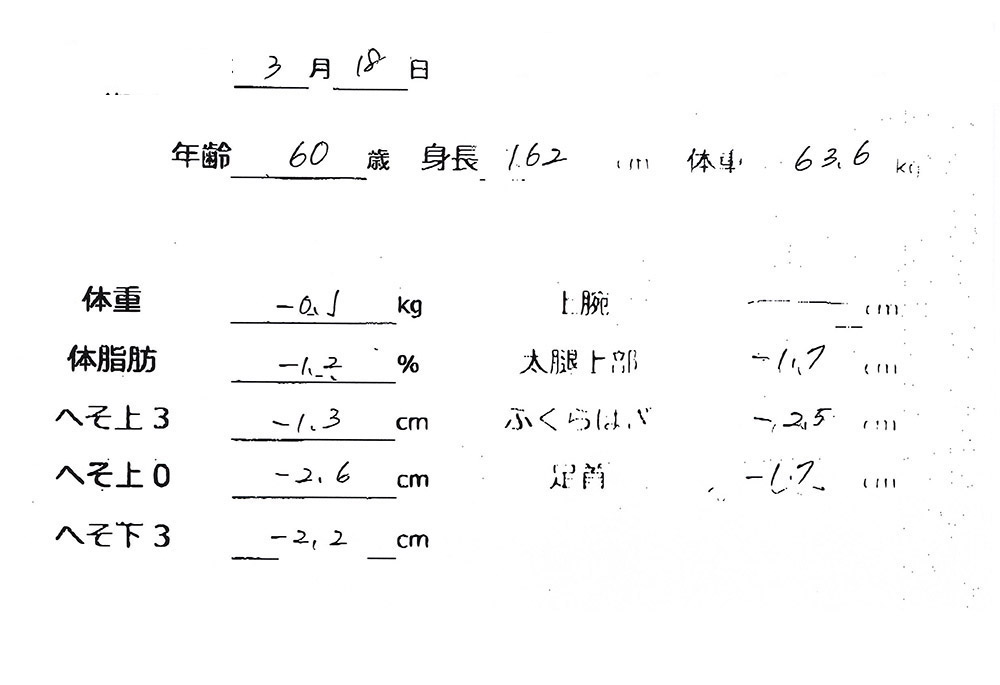 3月18日
年齢 60 歳 身長 162 cm 体重 63.6 kg
体重 -0.1 kg 上腕 — cm
体脂肪 -1.2 % 太腿上部 -1.7 cm
へそ上3 -1.3 cm ふくらはぎ -2.5 cm
へそ上0 -2.6 cm 足首 -1.7 cm
へそ下3 -2.2 cm